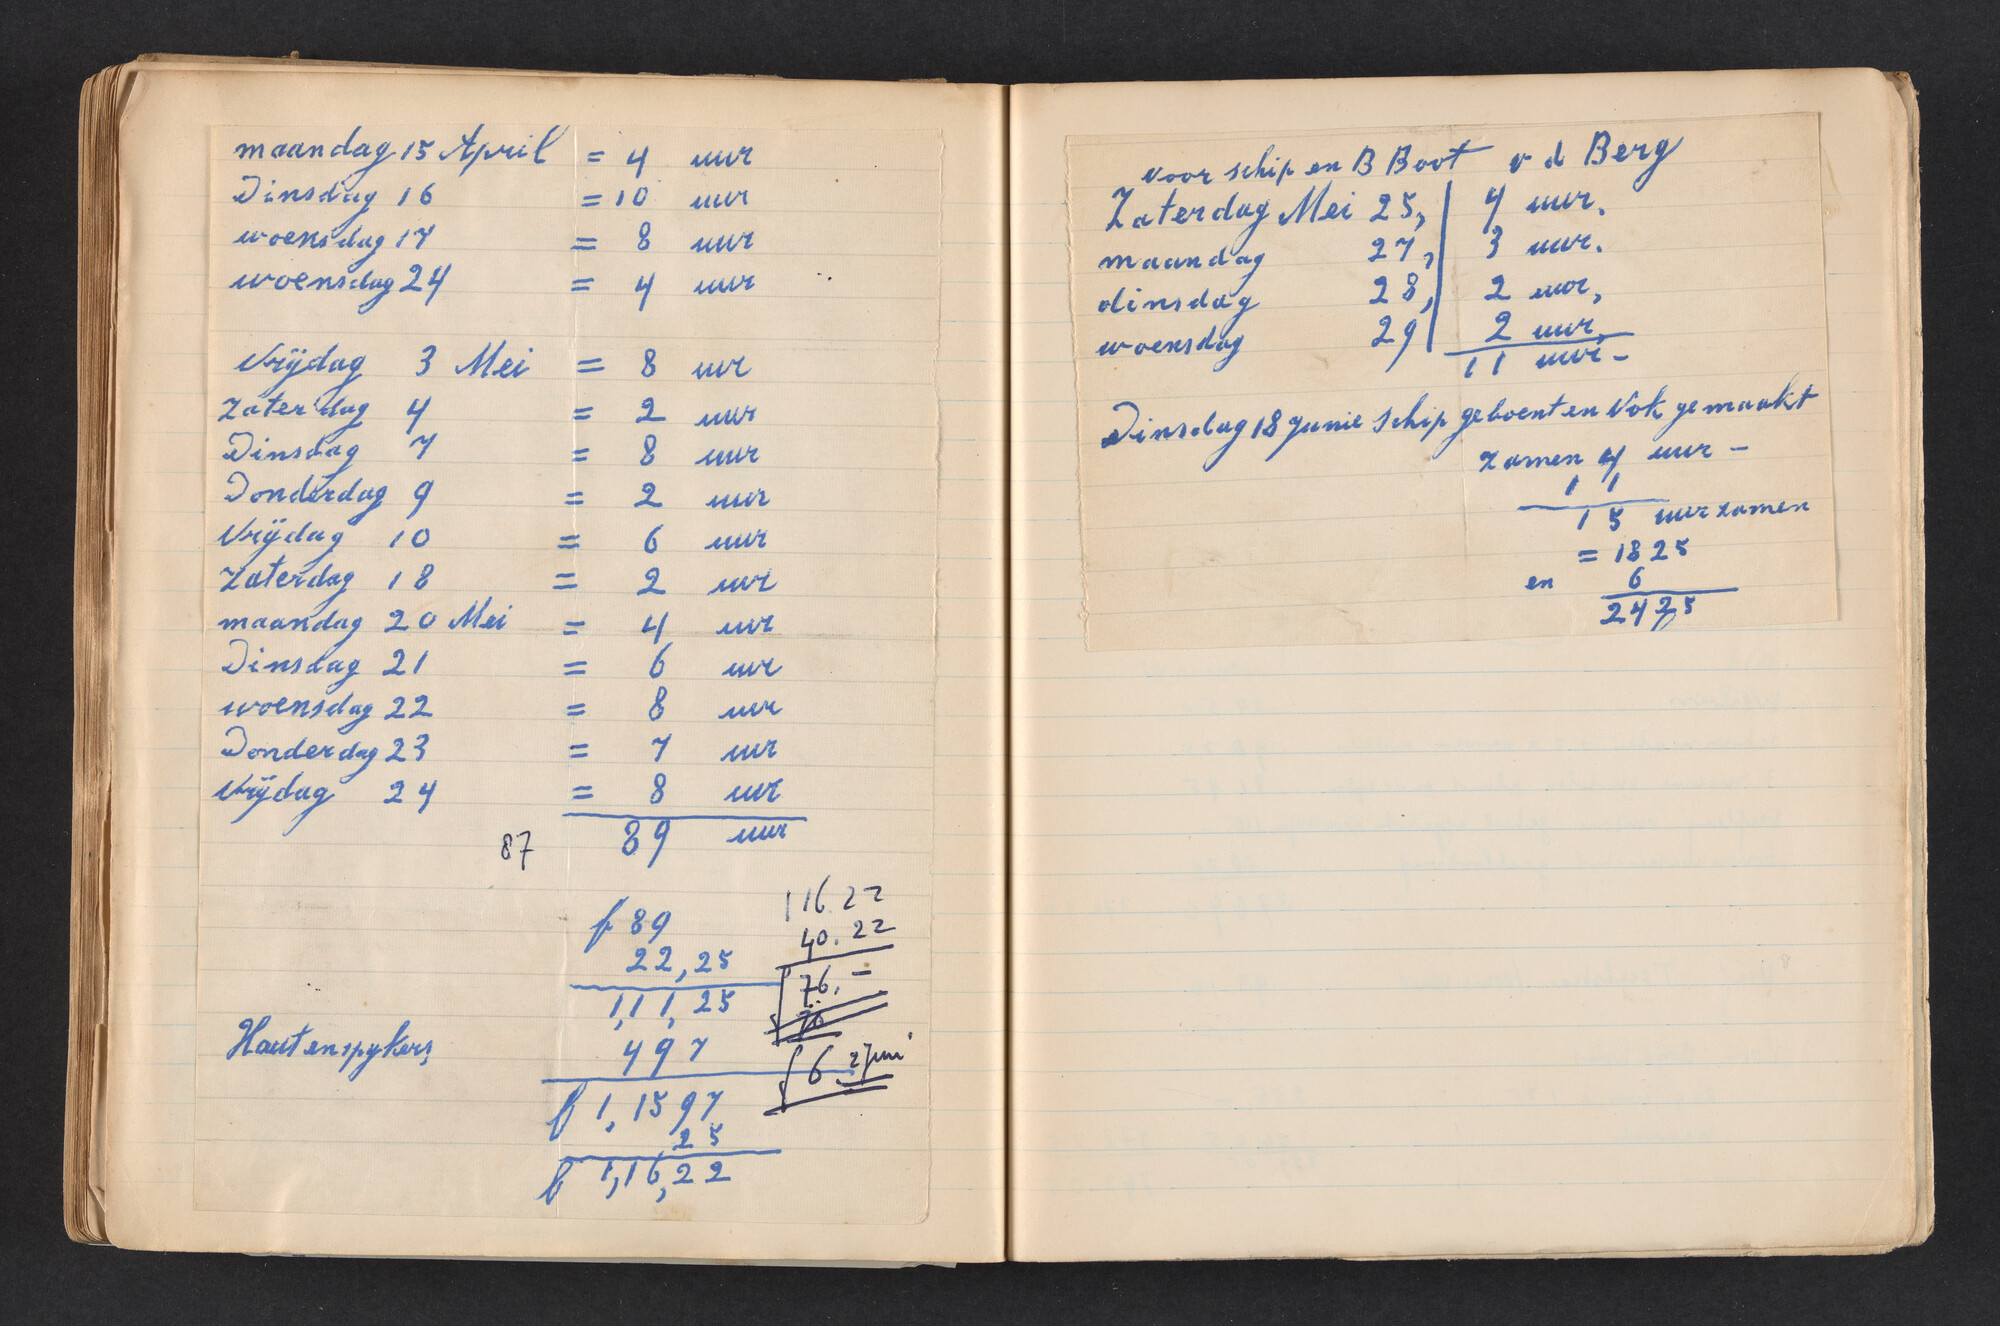 maandag 15 April = 4 uur
Dinsdag 16 = 10 uur
woensdag 17 = 8 uur
woensdag 24 = 4 uur
Vrijdag 3 Mei = 8 uur
Zaterdag 4 = 2 uur
Dinsdag 7 = 8 uur
Donderdag 9 = 2 uur
Vrijdag 10 = 6 uur
Zaterdag 18 = 2 uur
maandag 20 Mei = 4 uur
Dinsdag 21 = 6 uur
woensdag 22 = 8 uur
Donderdag 23 = 7 uur
Vrijdag 24 = 8 uur
87 89 uur
f 89
22,25
1,11,25
Hout en spykers 497
f 1,1597
25
f 1,16,22
116.22
40.22
76.–
70
f 6 27 juni
voor schip en B Boot v d Berg
Zaterdag Mei 25, 4 uur.
maandag 27, 3 uur.
dinsdag 28, 2 uur,
woensdag 29 2 uur,
11 uur –
Dinsdag 18 Junie schip geboent en Vok gemaakt
zamen 4 uur –
11
15 uur zamen
= 1825
en 6
24,25